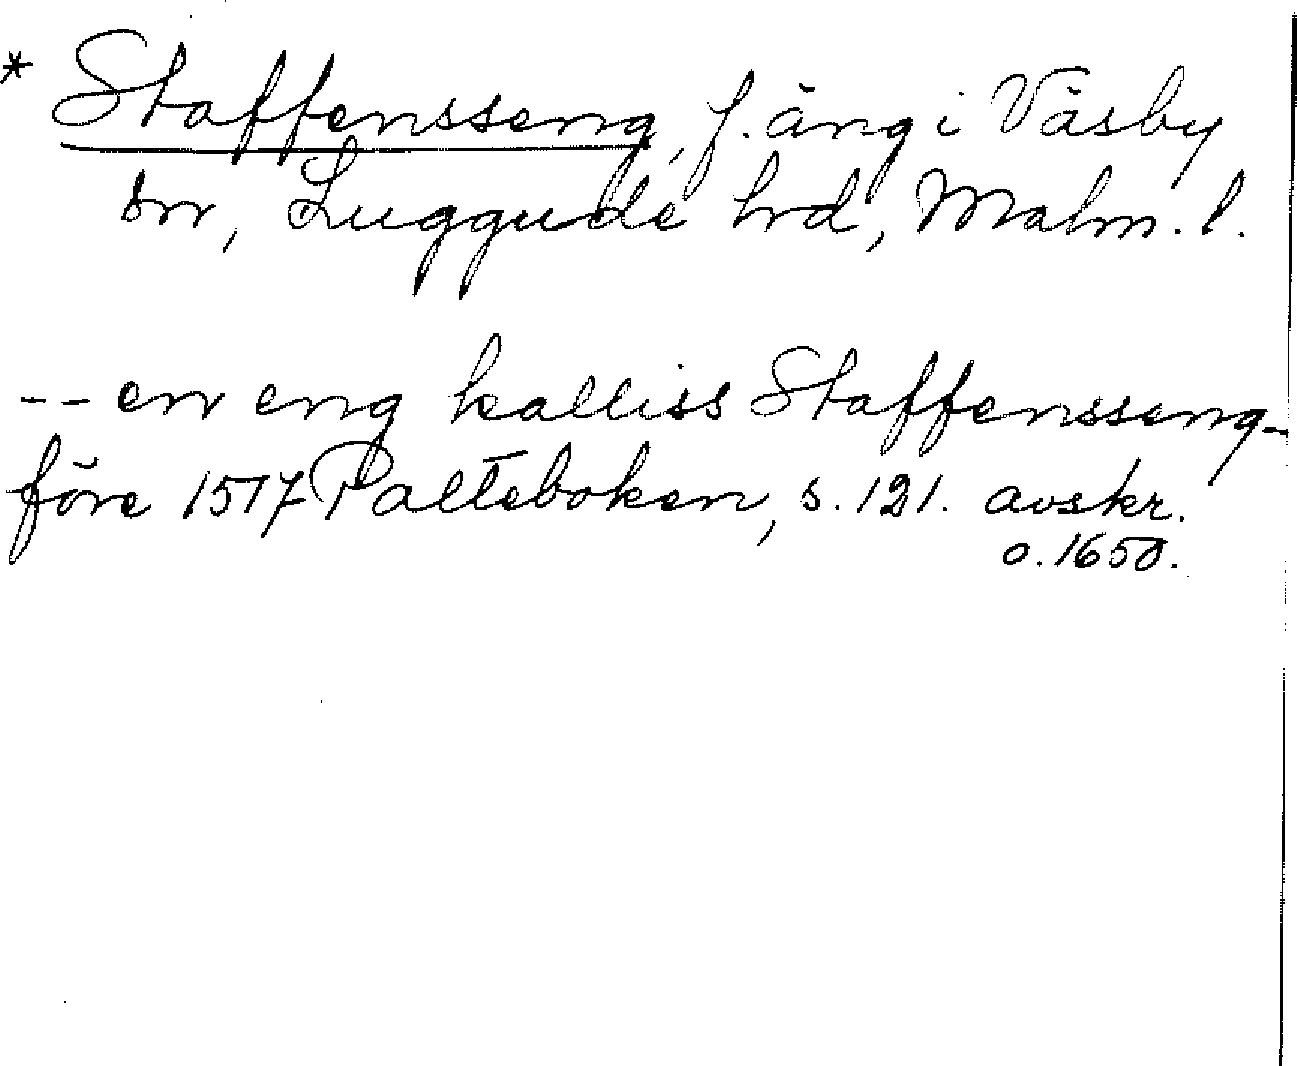 * Staffensseng, f. äng i Väsby
sn, Luggude hrd, Malm. l.
-- en eng kalliss Staffensseng--
före 1517 Palteboken, s. 121. avskr.
o. 1650.